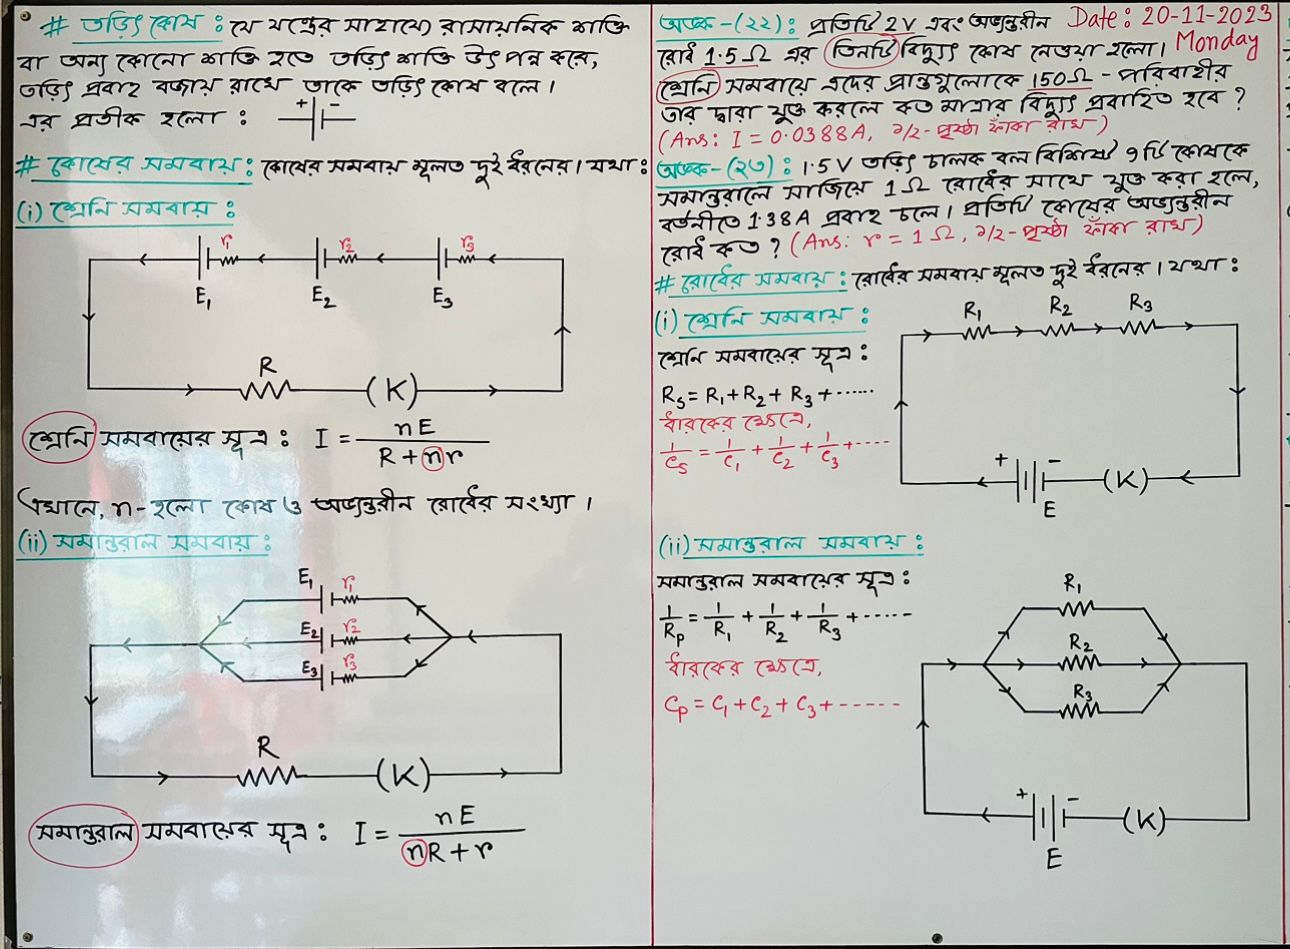 # তড়িৎ কোষ : যে যন্ত্রের সাহায্যে রাসায়নিক শক্তি
বা অন্য কোনো শক্তি হতে তড়িৎ শক্তি উৎপন্ন করে,
তড়িৎ প্রবাহ বজায় রাখে তাকে তড়িৎ কোষ বলে।
এর প্রতীক হলো : + -
# কোষের সমবায় : কোষের সমবায় মূলত দুই ধরনের। যথা :
(i) শ্রেনি সমবায় :
r₁ r₂ r₃
E₁ E₂ E₃
R (K)
শ্রেনি সমবায়ের সূত্র : I = nE / (R + nr)
এখানে, n - হলো কোষ ও অভ্যন্তরীন রোধের সংখ্যা।
(ii) সমান্তরাল সমবায় :
E₁ r₁
E₂ r₂
E₃ r₃
R (K)
সমান্তরাল সমবায়ের সূত্র : I = nE / (nR + r)
Date : 20-11-2023
Monday
অঙ্ক-(২২) : প্রতিটি 2V এবং অভ্যন্তরীন
রোধ 1.5Ω এর তিনটি বিদ্যুৎ কোষ নেওয়া হলো।
শ্রেনি সমবায়ে এদের প্রান্তগুলোকে 150Ω - পরিবাহীর
তার দ্বারা যুক্ত করলে কত মাত্রার বিদ্যুৎ প্রবাহিত হবে ?
(Ans : I = 0.0388A, ১/২ - পৃষ্ঠা ফাঁকা রাখ)
অঙ্ক-(২৩) : 1.5V তড়িৎ চালক বল বিশিষ্ট ৭টি কোষকে
সমান্তরালে সাজিয়ে 1Ω রোধের সাথে যুক্ত করা হলে,
বর্তনীতে 1.38A প্রবাহ চলে। প্রতিটি কোষের অভ্যন্তরীন
রোধ কত ? (Ans : r = 1Ω, ১/২ - পৃষ্ঠা ফাঁকা রাখ)
# রোধের সমবায় : রোধের সমবায় মূলত দুই ধরনের। যথা :
(i) শ্রেনি সমবায় :
R₁ R₂ R₃
শ্রেনি সমবায়ের সূত্র :
Rₛ = R₁ + R₂ + R₃ + ......
ধারকের ক্ষেত্রে,
1/Cₛ = 1/C₁ + 1/C₂ + 1/C₃ + ....
+ - (K)
E
(ii) সমান্তরাল সমবায় :
সমান্তরাল সমবায়ের সূত্র :
1/Rₚ = 1/R₁ + 1/R₂ + 1/R₃ + ......
ধারকের ক্ষেত্রে,
Cₚ = C₁ + C₂ + C₃ + -----
R₁
R₂
R₃
+ - (K)
E